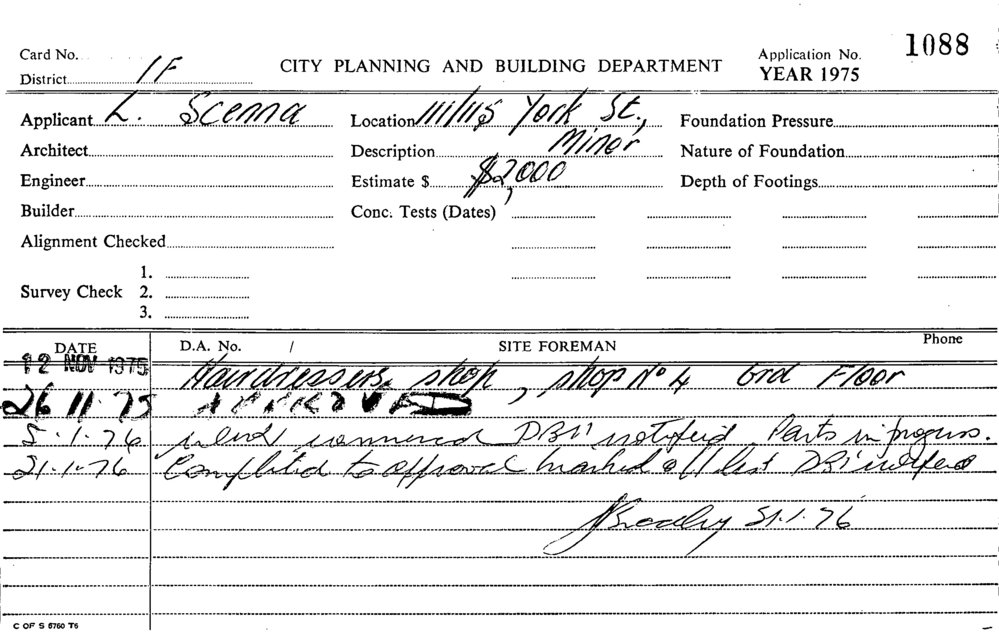 Card No. 1088
District 1F CITY PLANNING AND BUILDING DEPARTMENT Application No. YEAR 1975
Applicant L. Scenna Location 111/115 York St., Foundation Pressure
Architect Description Minor Nature of Foundation
Engineer Estimate $ $2,000 Depth of Footings
Builder Conc. Tests (Dates)
Alignment Checked
1.
Survey Check 2.
3.
DATE D.A. No. / SITE FOREMAN Phone
12 NOV 1975 Hairdressers shop, shop No 4 Grd Floor
26 11 75 APPROVED
5.1.76 work commenced DBI notified Parts in progress.
21.1.76 Completed to approval marked off list DBI notified
Bradley 21.1.76
C OF S 5760 T6